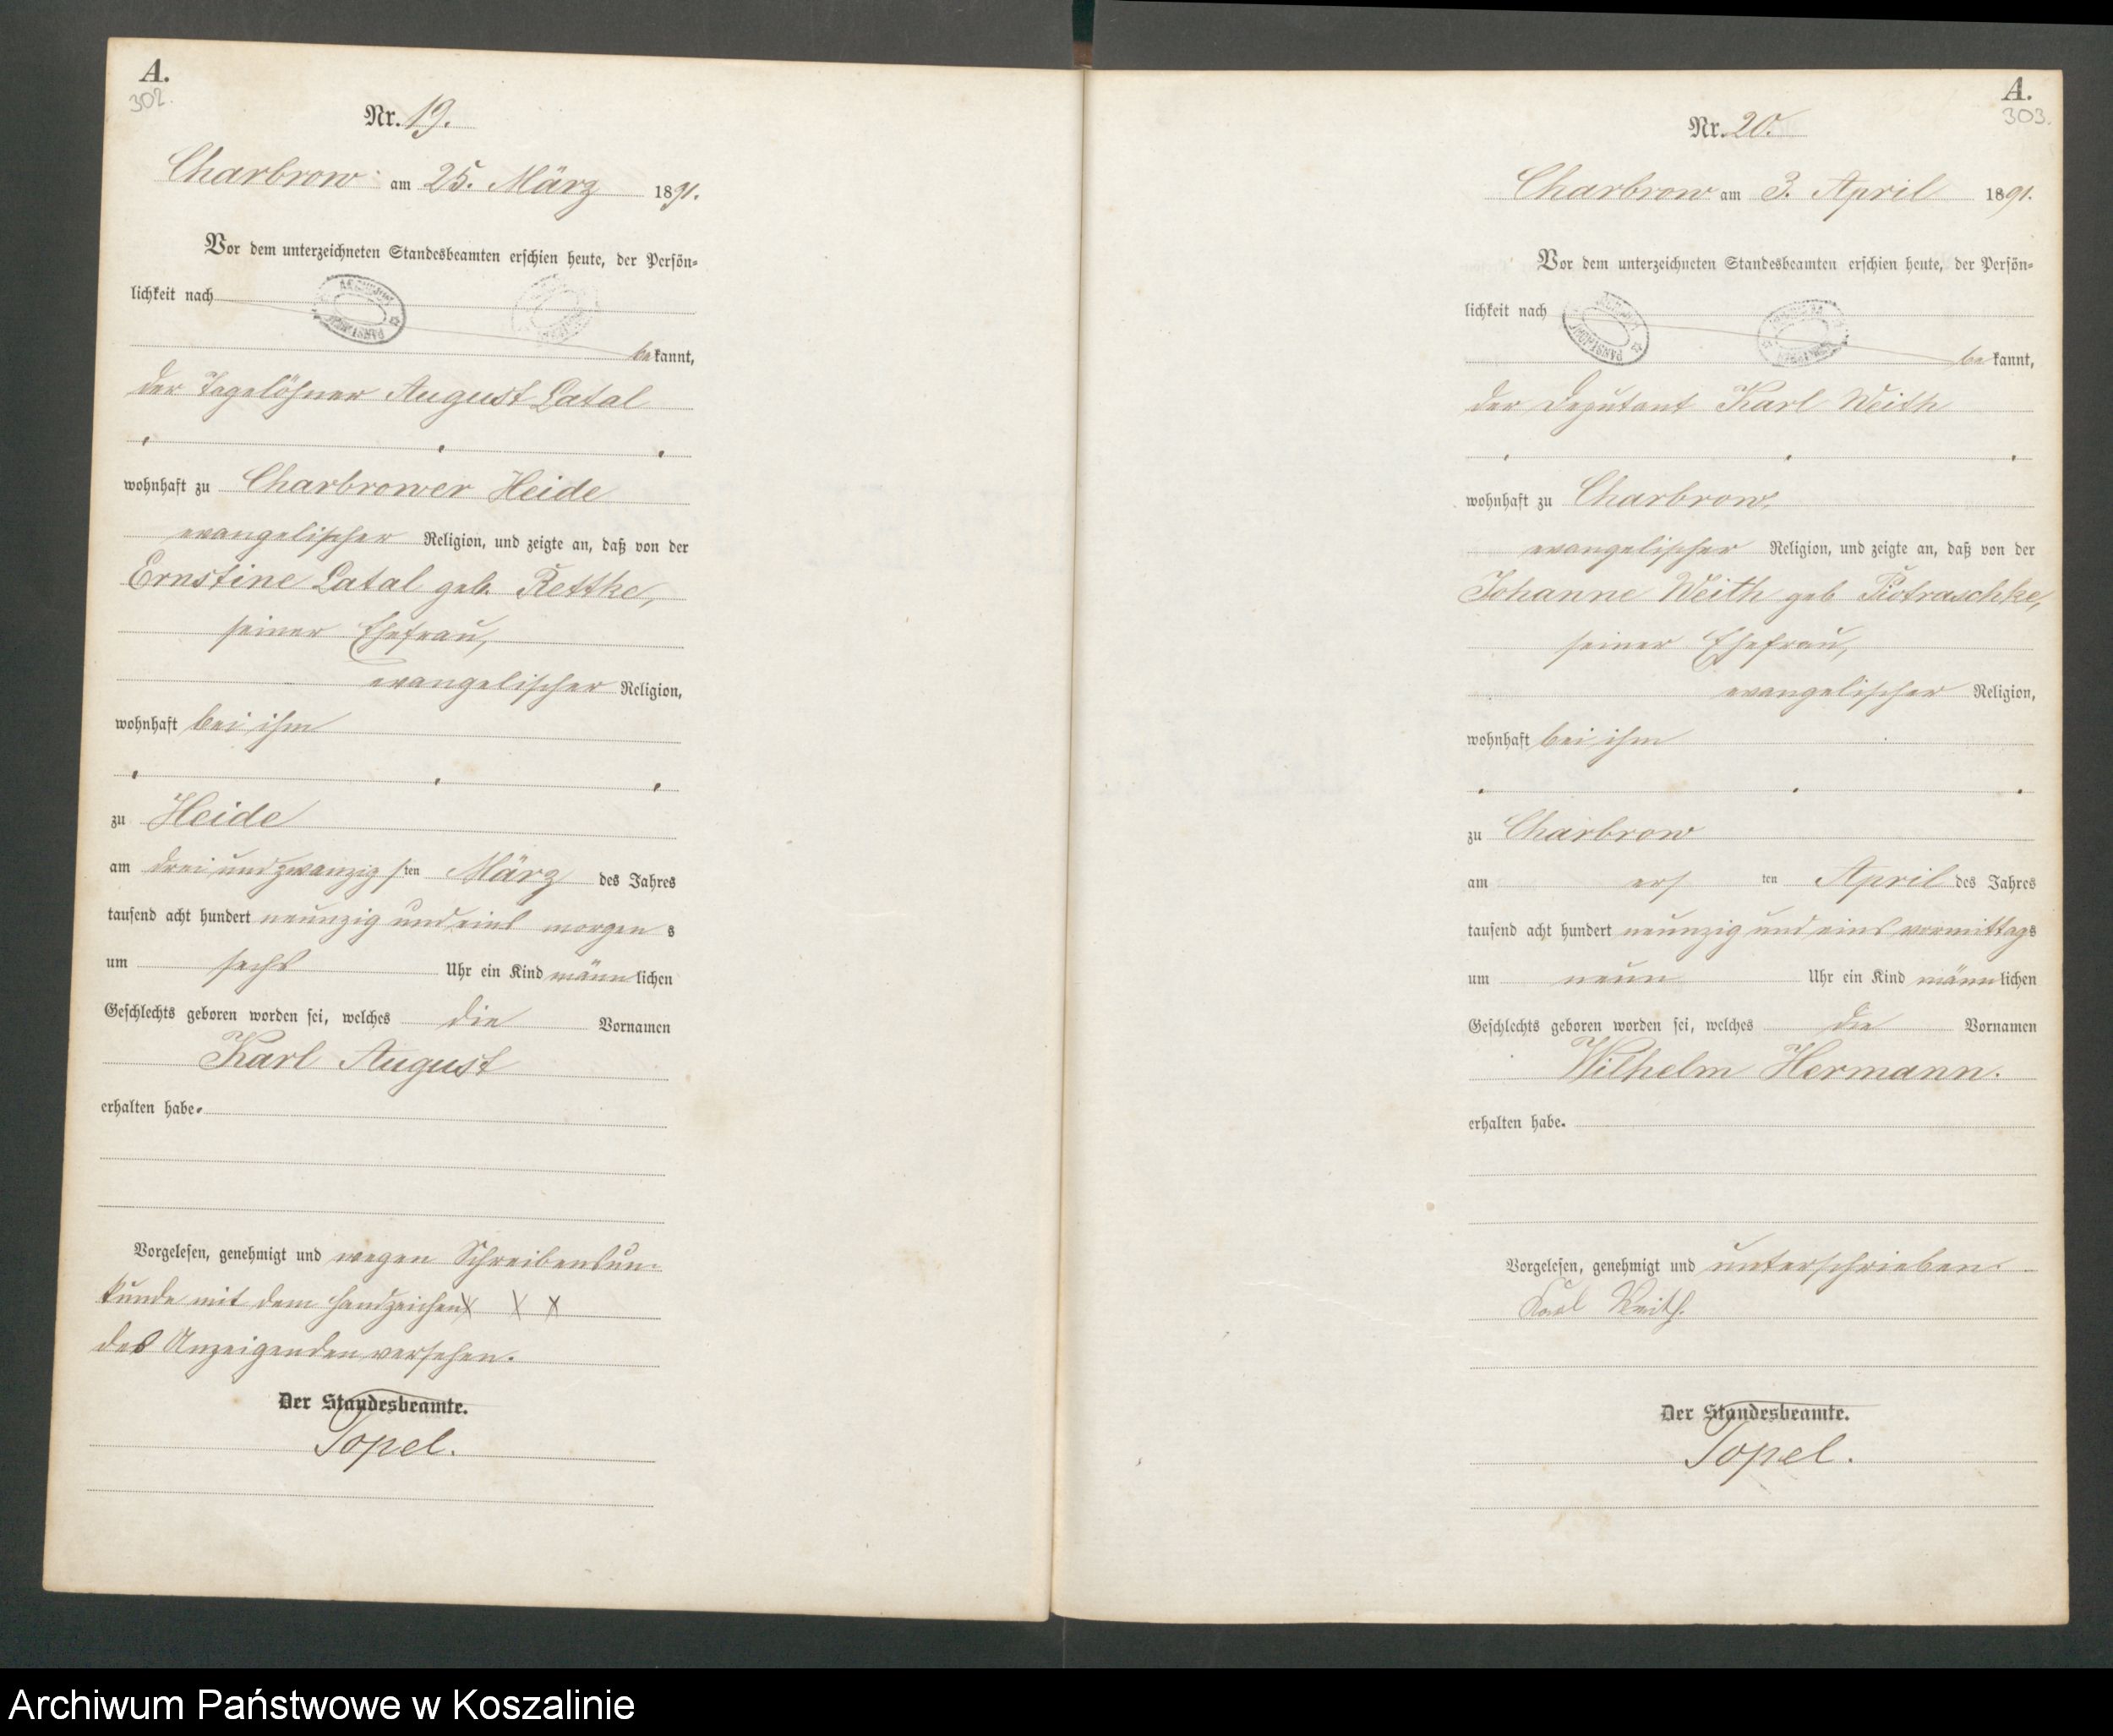 A.
302.
Nr. 19.
Charbrow am 25. März 1891.
Vor dem unterzeichneten Standesbeamten erschien heute, der Persön=
lichkeit nach
bekannt,
der Tagelöhner August Latal
wohnhaft zu Charbrower Heide
evangelischer Religion, und zeigte an, daß von der
Ernstine Latal geb. Rettke,
seiner Ehefrau,
evangelischer Religion,
wohnhaft bei ihm
zu Heide
am drei und zwanzigsten März des Jahres
tausend acht hundert neunzig und eins morgens
um sechs Uhr ein Kind männlichen
Geschlechts geboren worden sei, welches die Vornamen
Karl August
erhalten habe.
Vorgelesen, genehmigt und wegen Schreibensun-
kunde mit dem Handzeichen X X X
des Anzeigenden versehen.
Der Standesbeamte.
Topel.
A.
303.
Nr. 20.
Charbrow am 3. April 1891.
Vor dem unterzeichneten Standesbeamten erschien heute, der Persön=
lichkeit nach
bekannt,
der Deputant Karl Weith
wohnhaft zu Charbrow,
evangelischer Religion, und zeigte an, daß von der
Johanne Weith geb Piotraschke,
seiner Ehefrau,
evangelischer Religion,
wohnhaft bei ihm
zu Charbrow
am ersten April des Jahres
tausend acht hundert neunzig und eins vormittags
um neun Uhr ein Kind männlichen
Geschlechts geboren worden sei, welches die Vornamen
Wilhelm Hermann.
erhalten habe.
Vorgelesen, genehmigt und unterschrieben
Karl Weith.
Der Standesbeamte.
Topel.
Archiwum Państwowe w Koszalinie